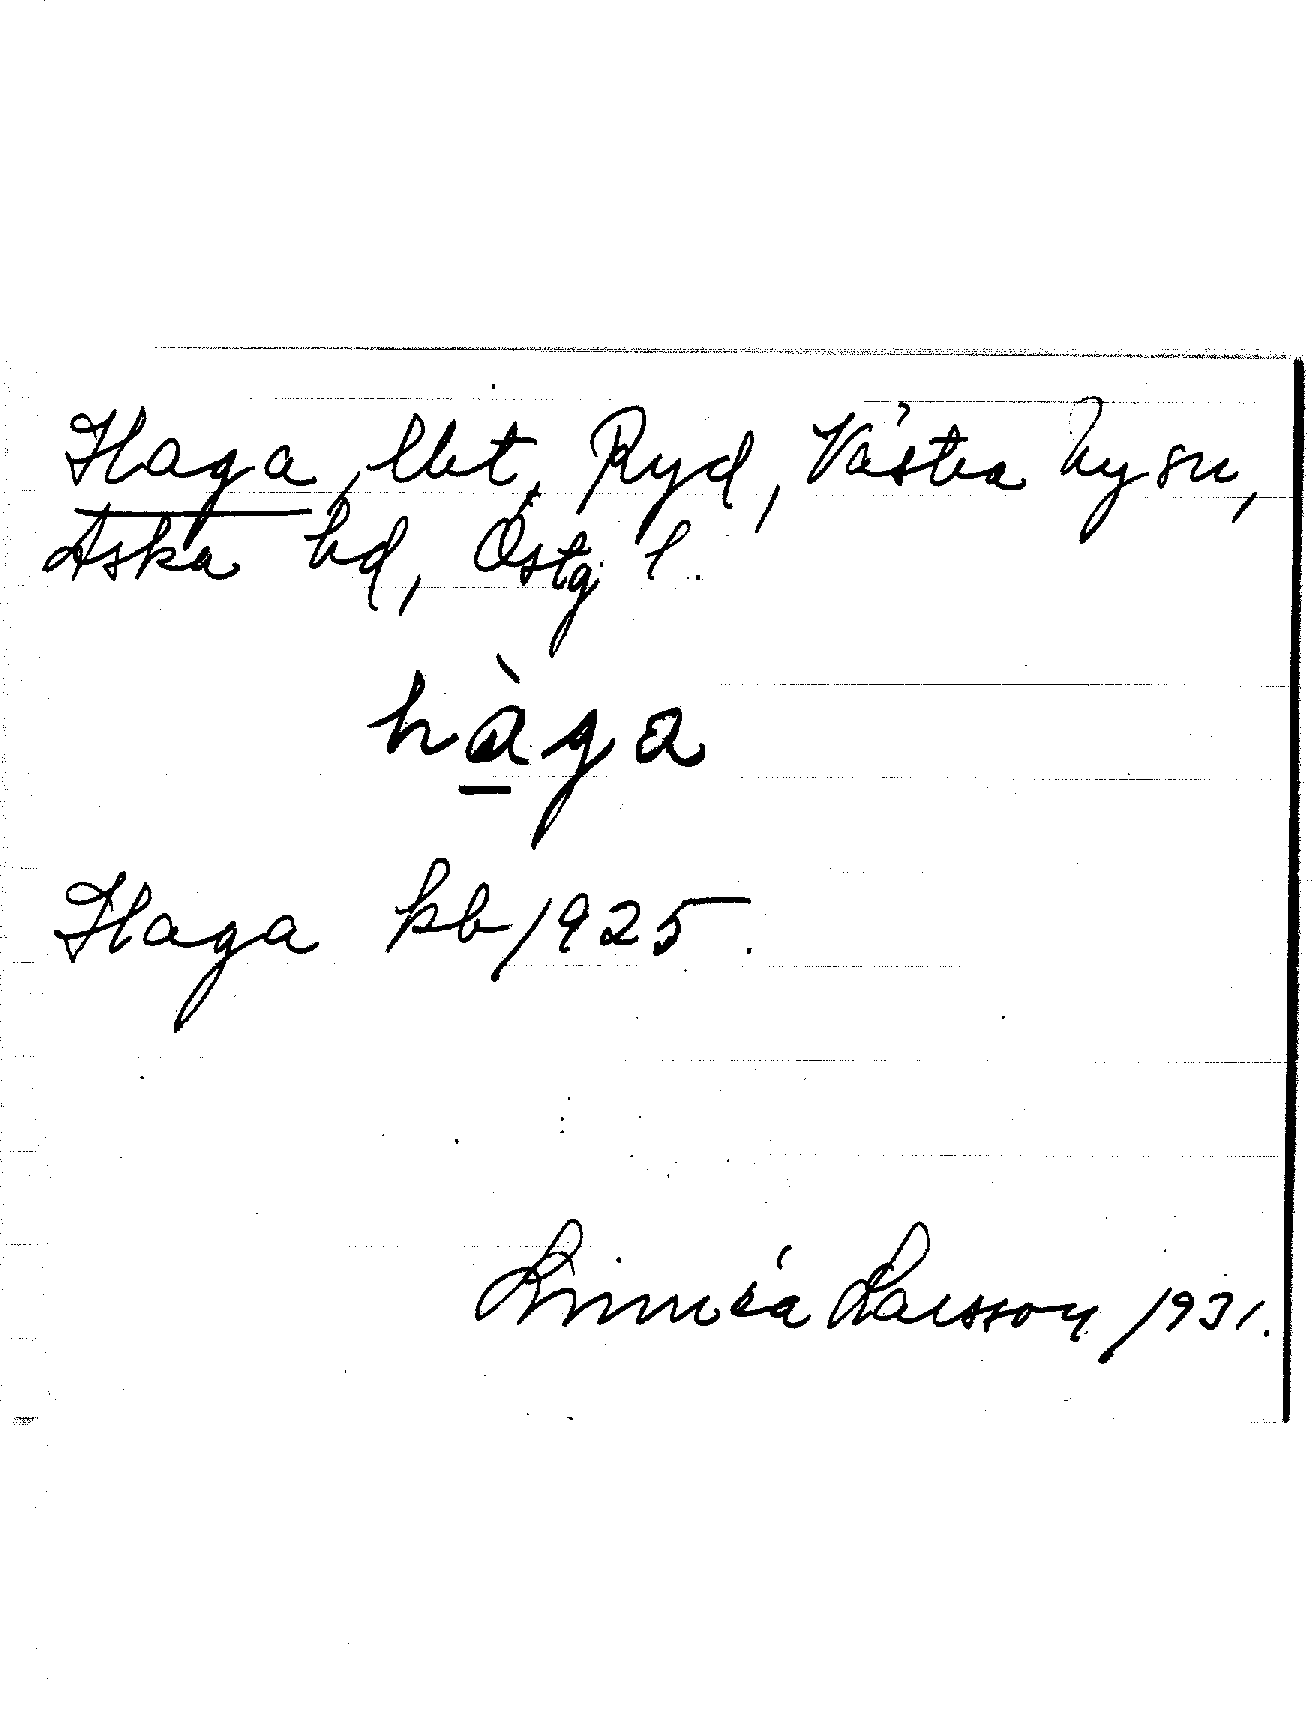 Haga, lht, Ryd, Västra Ny sn,
Aska hd, Östg l.
hàga
Haga kb 1925.
Linnéa Larsson 1931.